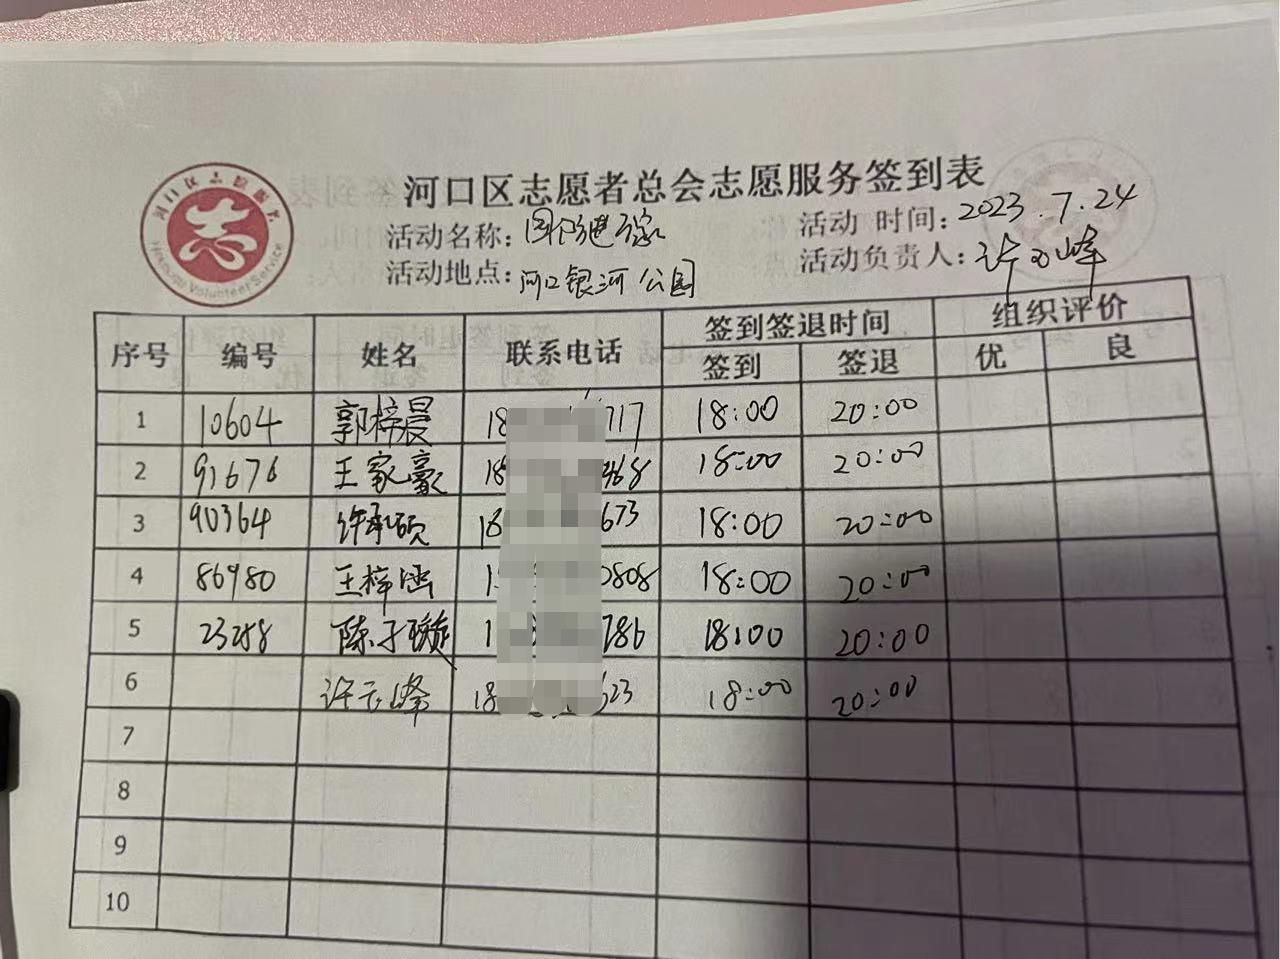 河口区志愿者总会志愿服务签到表
河口区志愿服务者
Hekouqu Volunteer Service
志
活动名称:
活动 时间: 2023.7.24
活动地点: 河口银河公园
活动负责人: 许云峰
序号 编号 姓名 联系电话 签到签退时间 组织评价
签到 签退 优 良
1 10604 郭梓晨 18 717 18:00 20:00
2 91676 王家豪 18 468 18:00 20:00
3 90364 许承硕 18 673 18:00 20:00
4 86980 王梓涵 1 0808 18:00 20:00
5 23258 陈子璇 1 786 18:00 20:00
6 许云峰 18 623 18:00 20:00
7
8
9
10